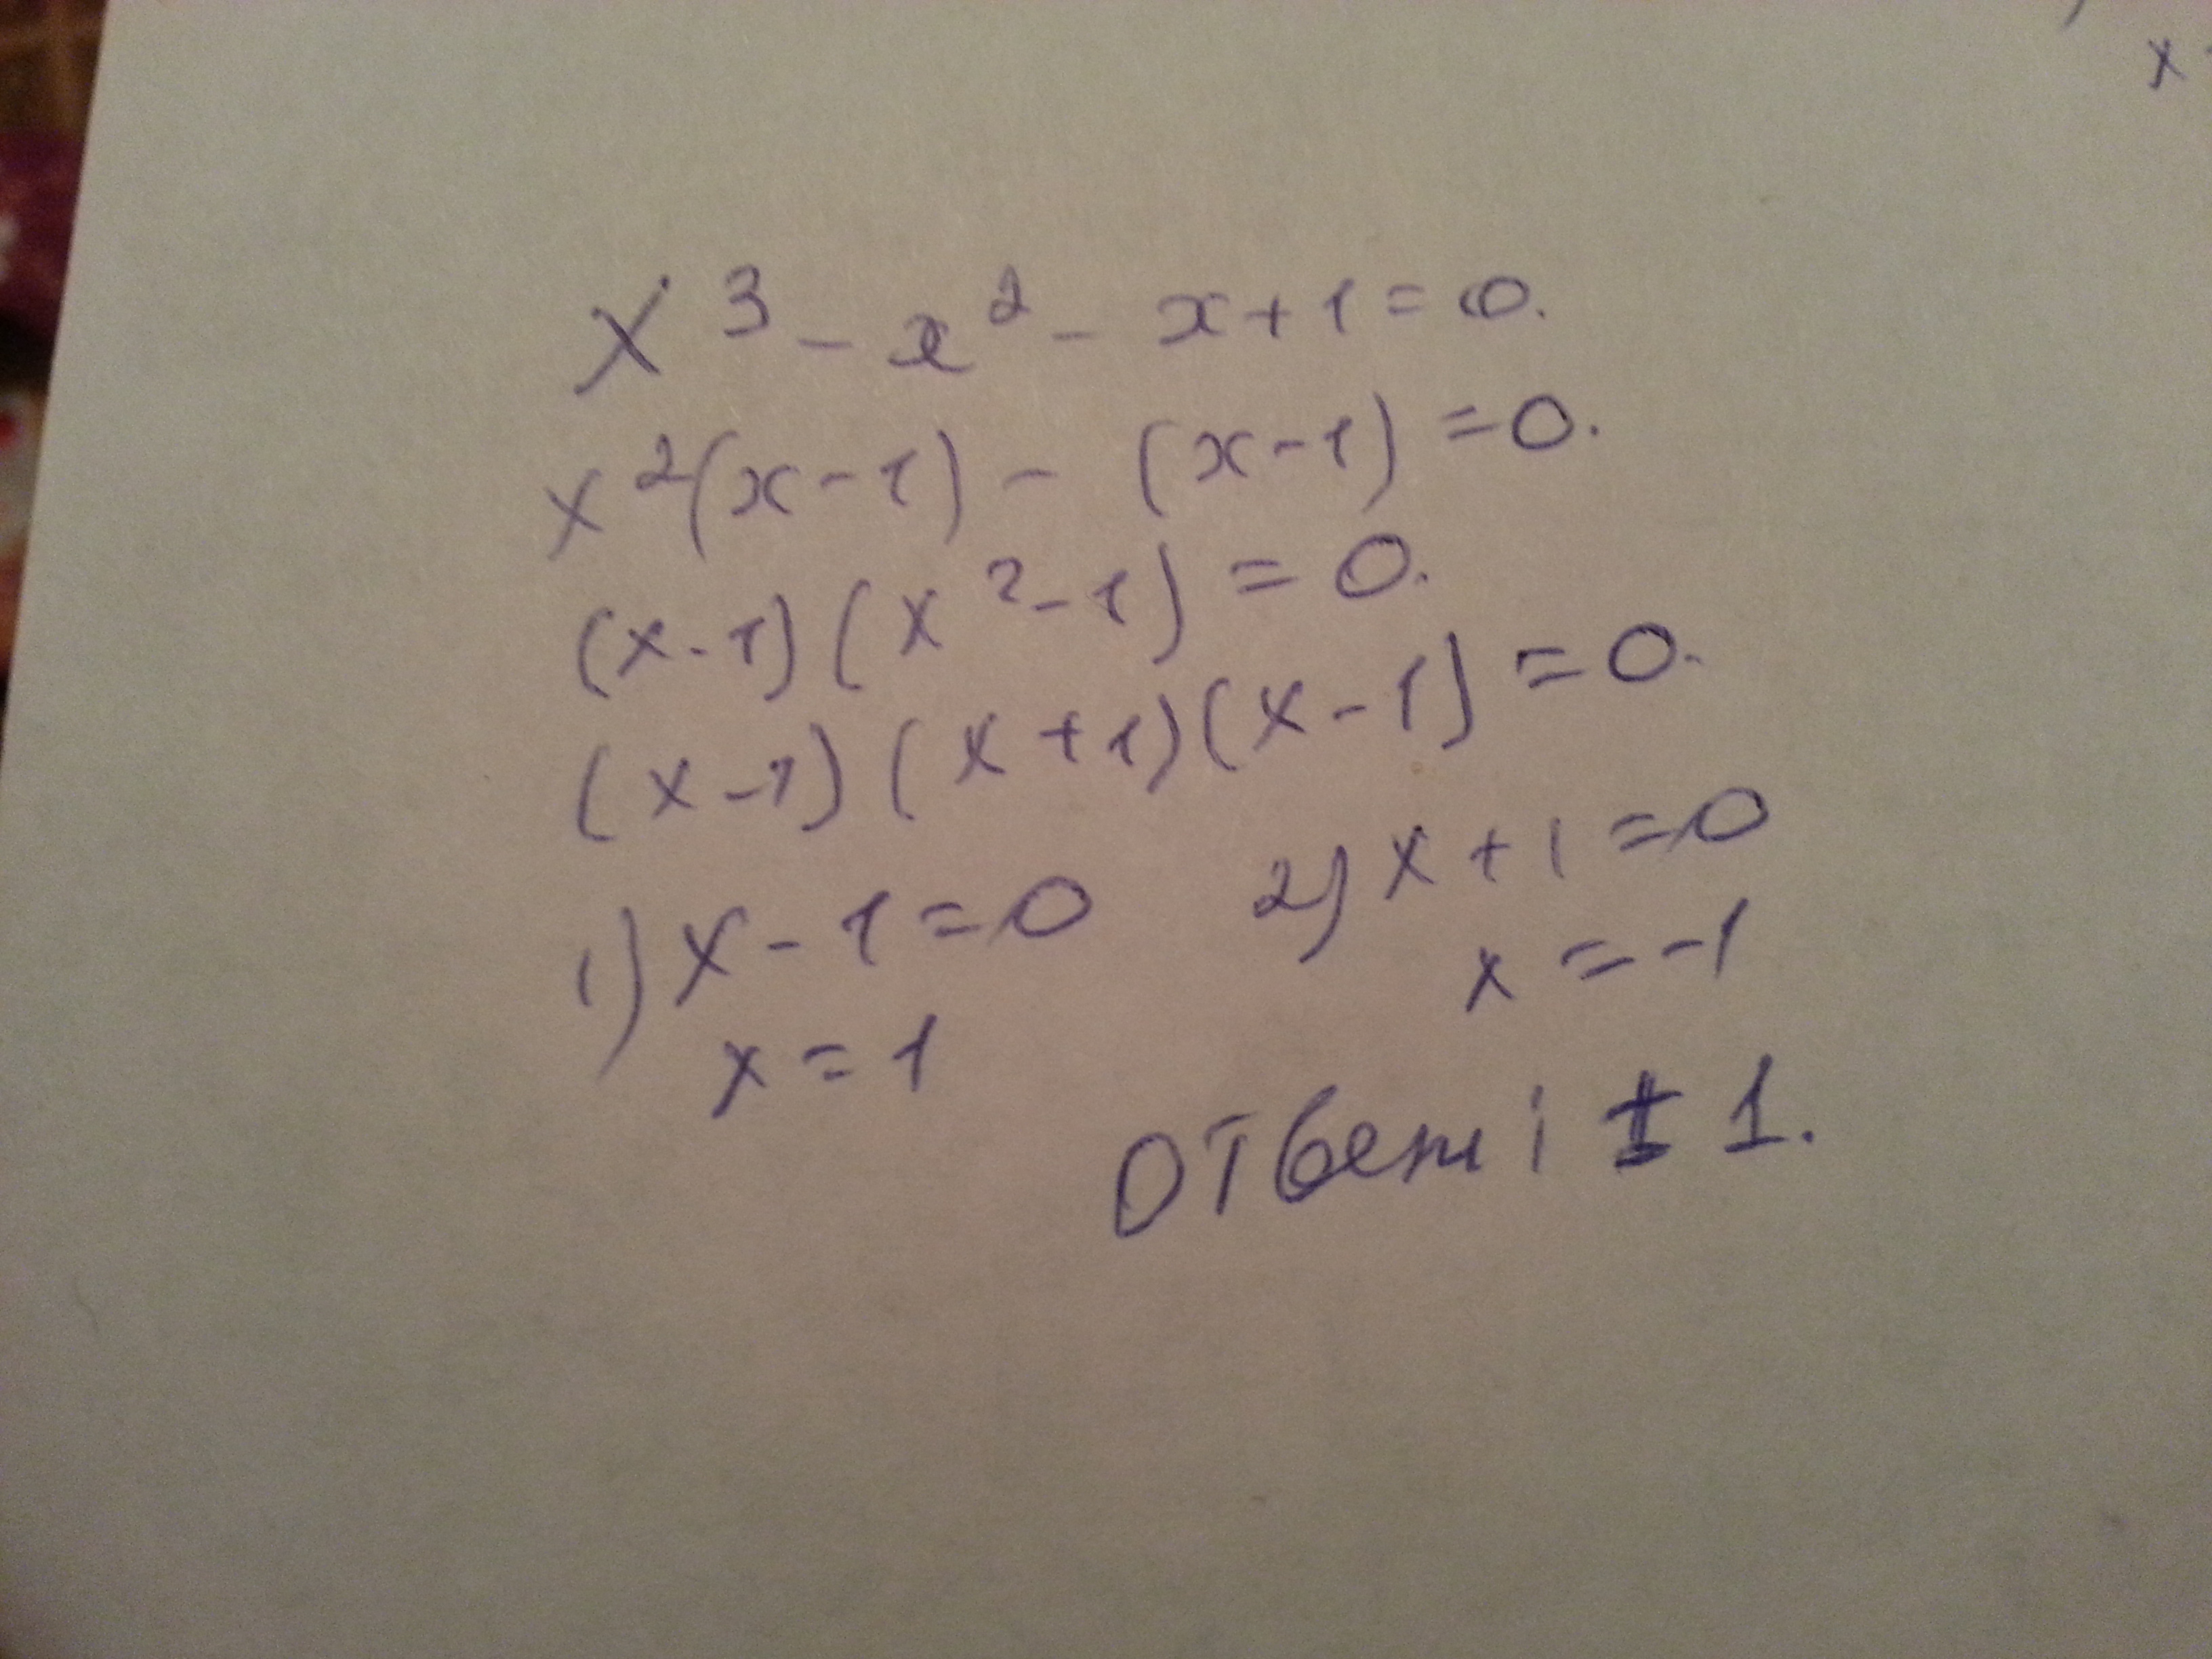 x³ - x² - x + 1 = 0.
x²(x - 1) - (x - 1) = 0.
(x - 1)(x² - 1) = 0.
(x - 1)(x + 1)(x - 1) = 0.
1) x - 1 = 0 2) x + 1 = 0
x = 1 x = -1
Ответ: ± 1.
x